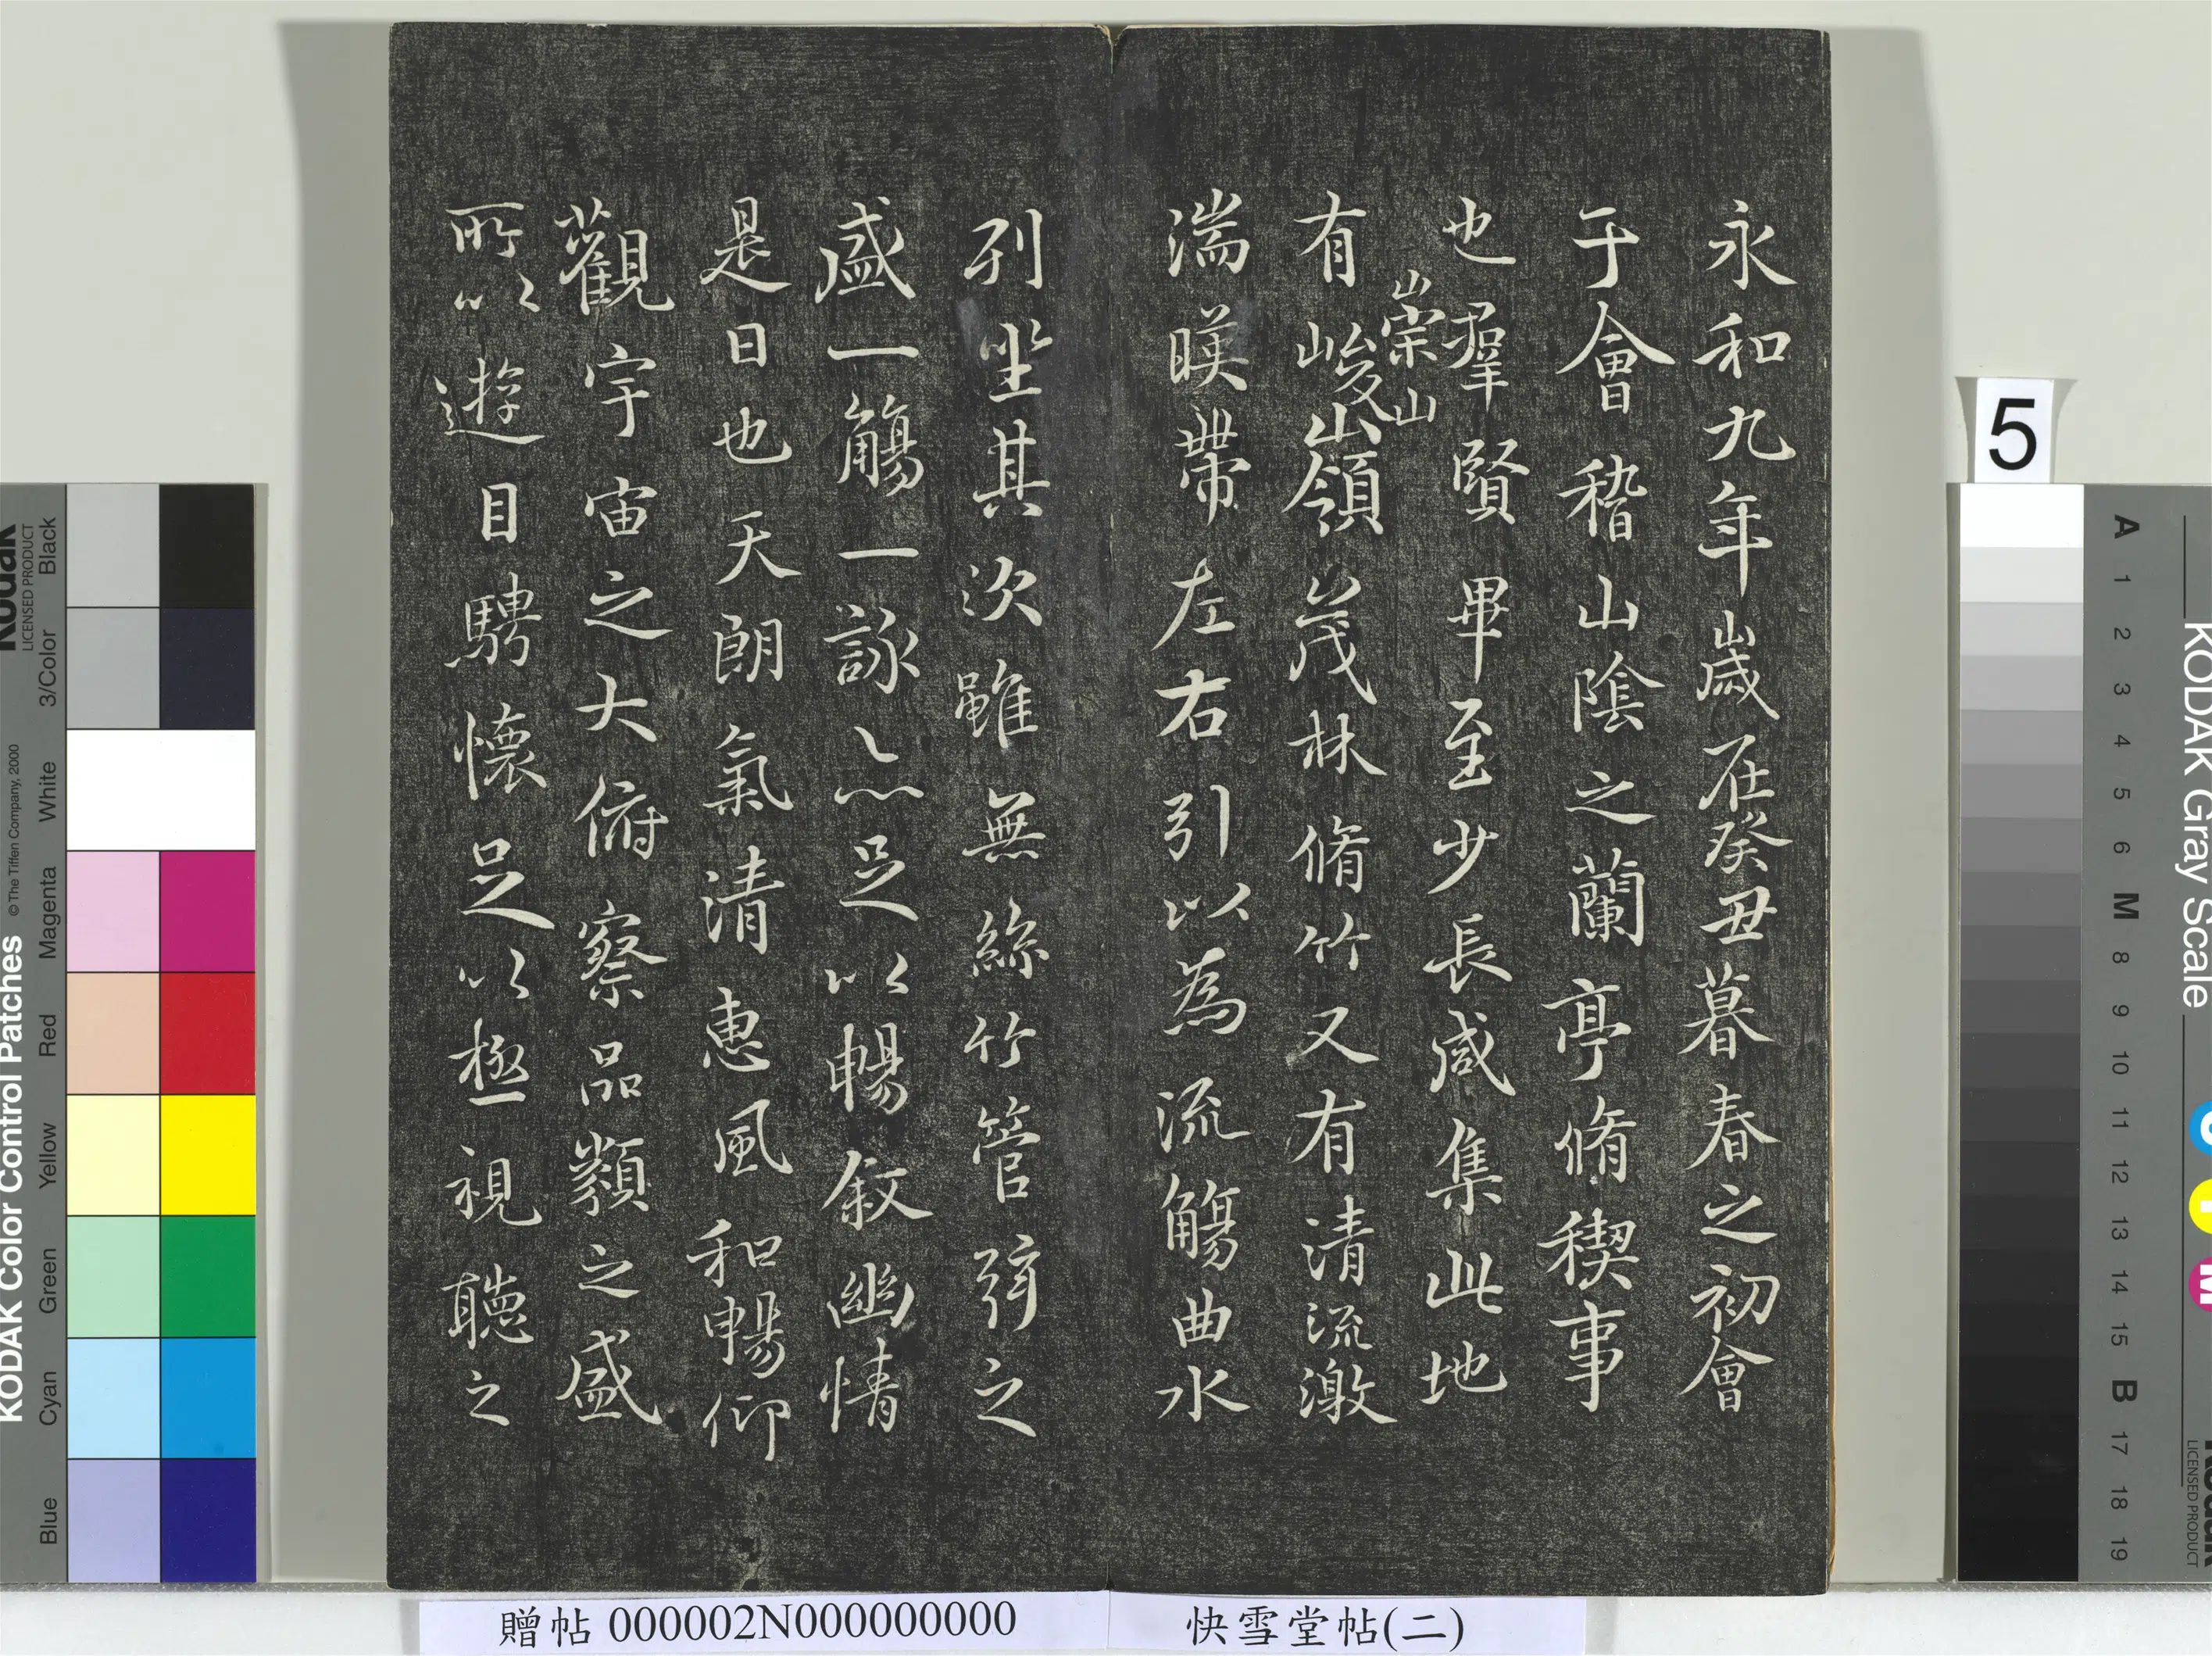 永和九年歲在癸丑暮春之初會
于會稽山陰之蘭亭脩稧事
也羣賢畢至少長咸集此地
崇山
有峻領茂林脩竹又有清流激
湍暎帶左右引以為流觴曲水
列坐其次雖無絲竹管弦之
盛一觴一詠亦足以暢敘幽情
是日也天朗氣清惠風和暢仰
觀宇宙之大俯察品類之盛
所以遊目騁懷足以極視聽之
贈帖 000002N000000000
快雪堂帖(二)
5
KODAK Color Control Patches
© The Tiffen Company, 2000
Kodak
LICENSED PRODUCT
Blue
Cyan
Green
Yellow
Red
Magenta
White
3/Color
Black
KODAK Gray Scale
A 1 2 3 4 5 6 M 8 9 10 11 12 13 14 15 B 17 18 19
C
Y
M
Kodak
LICENSED PRODUCT